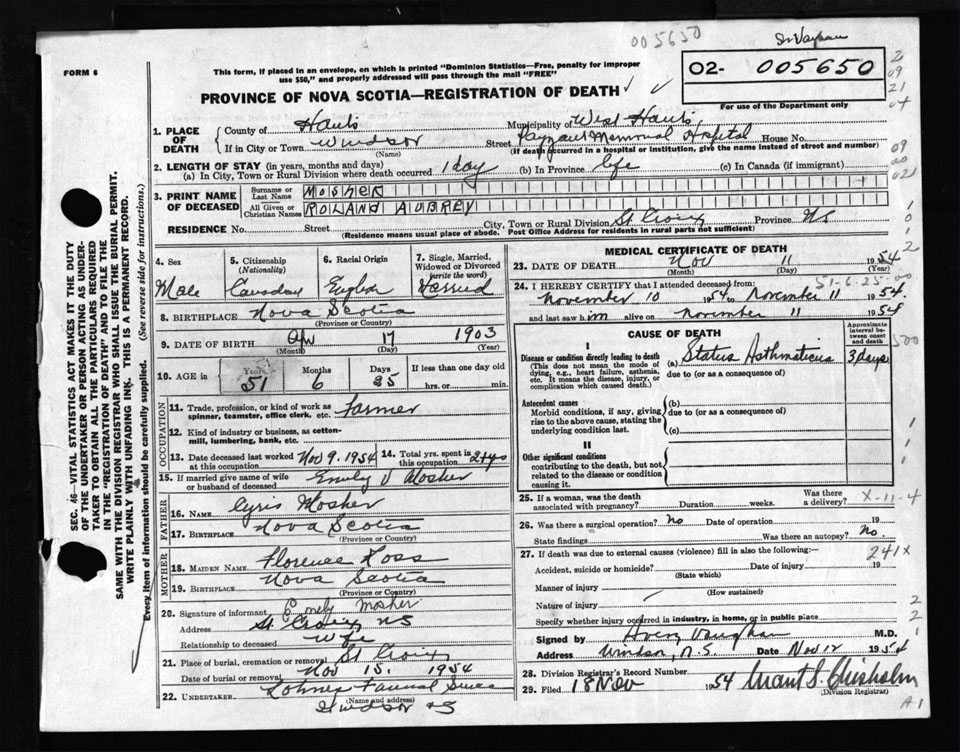 005650
Dr Vaughan
FORM 6
This form, if placed in an envelope, on which is printed "Dominion Statistics—Free, penalty for improper
use $50," and properly addressed will pass through the mail "FREE"
PROVINCE OF NOVA SCOTIA—REGISTRATION OF DEATH
O2- 005650
For use of the Department only
2
09
21
04
09
021
1. PLACE OF DEATH
County of Hants Municipality of West Hants,
If in City or Town Windsor Street Payzant Memorial Hospital House No.
(Name) (If death occurred in a hospital or institution, give the name instead of street and number)
2. LENGTH OF STAY (in years, months and days)
(a) In City, Town or Rural Division where death occurred 1 day (b) In Province life (c) In Canada (if immigrant)
3. PRINT NAME OF DECEASED
Surname or Last Name MOSHER
All Given or Christian Names ROLAND AUBREY
RESIDENCE No. Street City, Town or Rural Division St Croix Province NS
(Residence means usual place of abode. Post Office Address for residents in rural parts not sufficient)
SEC. 46—VITAL STATISTICS ACT MAKES IT THE DUTY
OF THE UNDERTAKER OR PERSON ACTING AS UNDER-
TAKER TO OBTAIN ALL THE PARTICULARS REQUIRED
IN THE "REGISTRATION OF DEATH" AND TO FILE THE
SAME WITH THE DIVISION REGISTRAR WHO SHALL ISSUE THE BURIAL PERMIT.
WRITE PLAINLY WITH UNFADING INK. THIS IS A PERMANENT RECORD.
Every item of information should be carefully supplied. (See reverse side for instructions.)
4. Sex Male
5. Citizenship (Nationality)
6. Racial Origin English
7. Single, Married, Widowed or Divorced (write the word)
8. BIRTHPLACE Nova Scotia
(Province or Country)
9. DATE OF BIRTH 17 1903
(Month) (Day) (Year)
10. AGE in Years 51 Months 6 Days 25 If less than one day old hrs. or min.
OCCUPATION
11. Trade, profession, or kind of work as spinner, teamster, office clerk, etc. Farmer
12. Kind of industry or business, as cotton-mill, lumbering, bank, etc.
13. Date deceased last worked at this occupation Nov 9. 1954
14. Total yrs. spent in this occupation
15. If married give name of wife or husband of deceased Emely V Mosher
FATHER
16. NAME Cyris Mosher
17. BIRTHPLACE Nova Scotia
(Province or Country)
MOTHER
18. MAIDEN NAME Florence Ross
19. BIRTHPLACE Nova Scotia
(Province or Country)
20. Signature of informant Emely Mosher
Address St Croix, NS
Relationship to deceased Wife
21. Place of burial, cremation or removal St Croix
Date of burial or removal Nov 15. 1954
22. UNDERTAKER
(Name and address)
Windsor NS
MEDICAL CERTIFICATE OF DEATH
23. DATE OF DEATH Nov 11 1954
(Month) (Day) (Year)
24. I HEREBY CERTIFY that I attended deceased from: 51-6-25-00
November 10 1954 to November 11 1954.
and last saw him alive on November 11 1954
CAUSE OF DEATH
Approximate interval between onset and death
I
Disease or condition directly leading to death
(This does not mean the mode of dying, e.g., heart failure, asthenia, etc. It means the disease, injury, or complication which caused death.)
(a) Status Asthmaticus 3 days
due to (or as a consequence of)
Antecedent causes
Morbid conditions, if any, giving rise to the above cause, stating the underlying condition last.
(b)
due to (or as a consequence of)
(c)
II
Other significant conditions
contributing to the death, but not related to the disease or condition causing it.
25. If a woman, was the death associated with pregnancy? Duration weeks. Was there a delivery?
X-11-4
26. Was there a surgical operation? No Date of operation 19
State findings Was there an autopsy? No.
27. If death was due to external causes (violence) fill in also the following:—
241X
Accident, suicide or homicide? Date of injury 19
(State which)
Manner of injury
(How sustained)
Nature of injury
Specify whether injury occurred in industry, in home, or in public place
Signed by Avery Vaughan M.D.
Address Windsor, N.S. Date Nov 12 1954
28. Division Registrar's Record Number
29. Filed 18 Nov 1954 Grant S. Chisholm
(Division Registrar)
A1